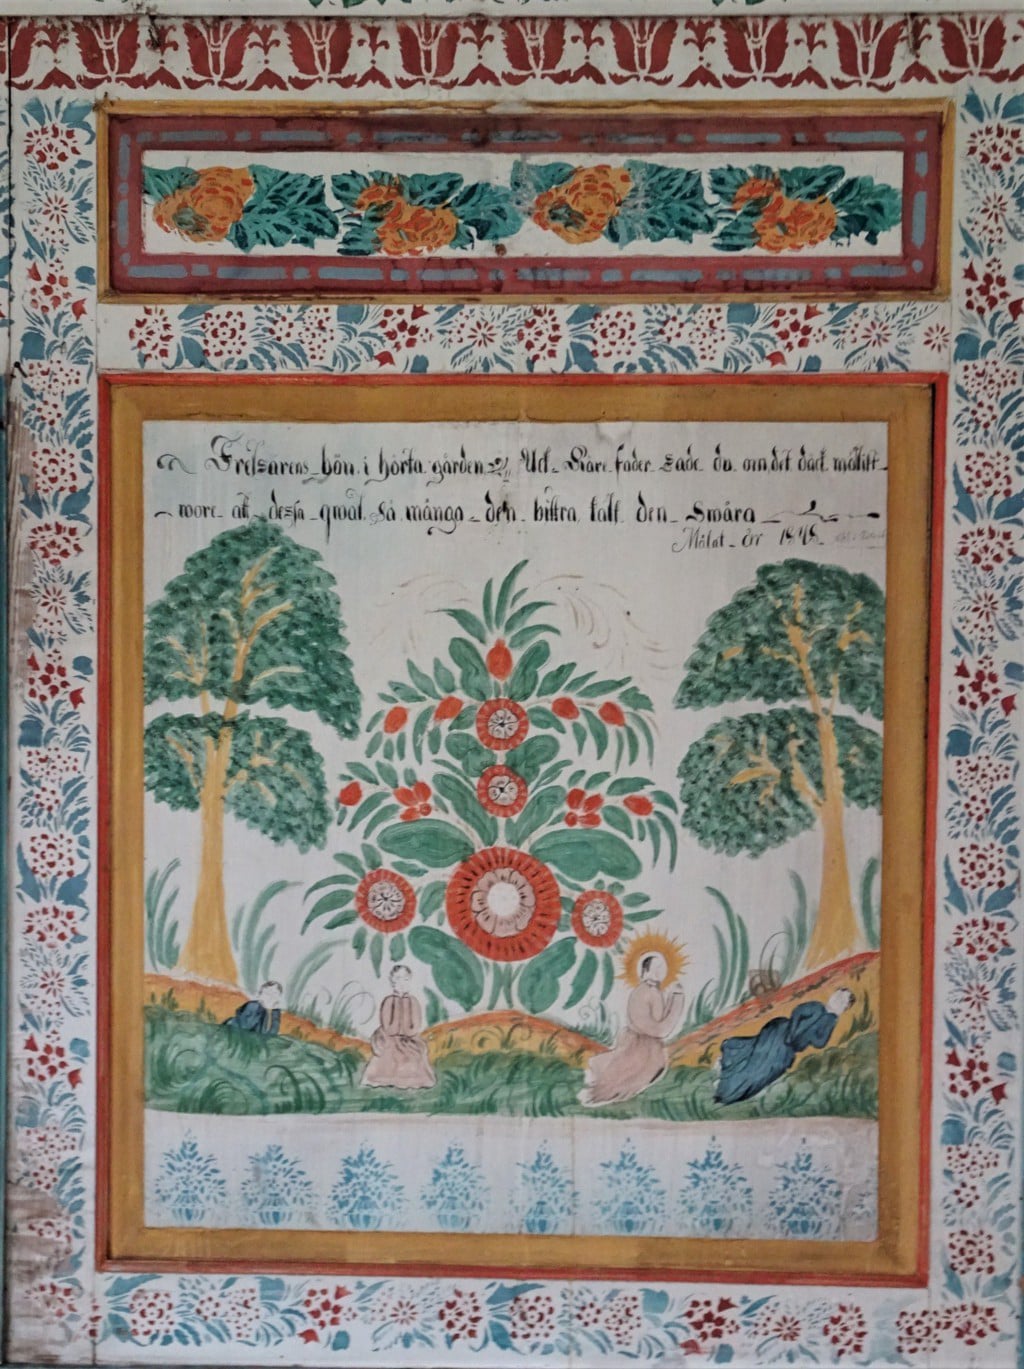 Frelsärens bön i hörta gården Ack Käre fader sade du om det däck möhlit
wore att dessa qwal så mångo den bittra kalk den Swåra
Målat år 1848